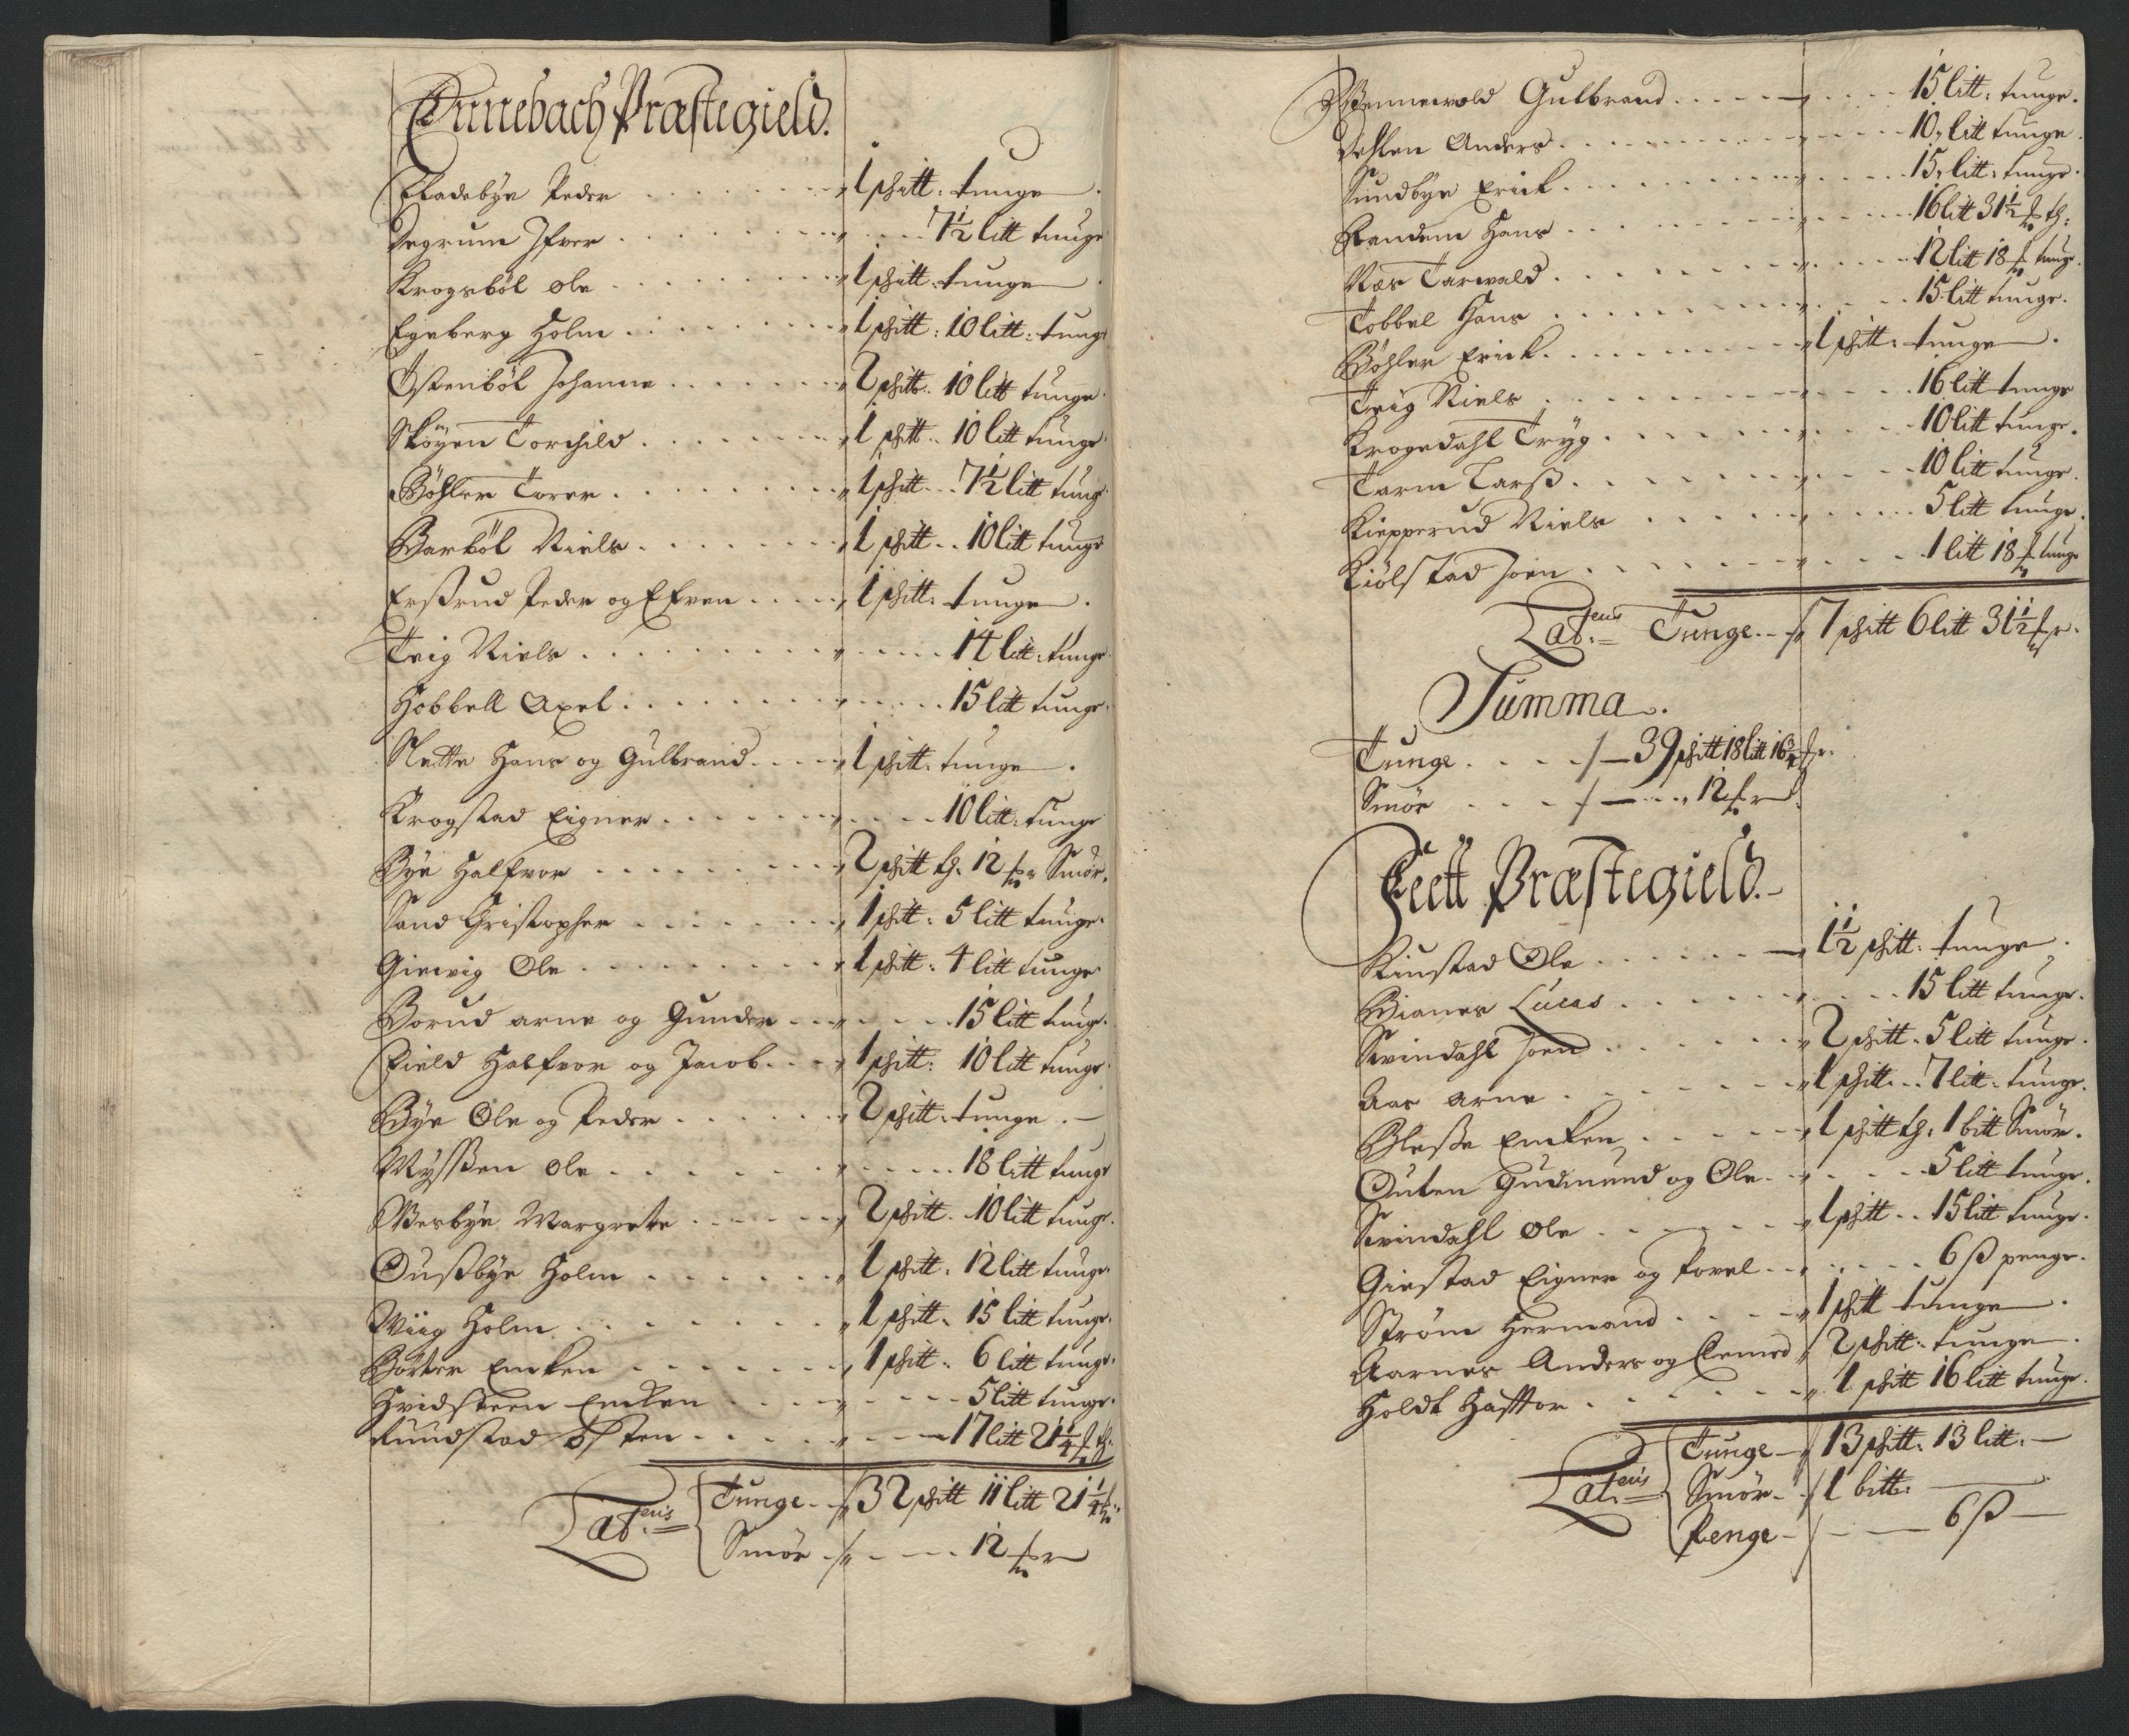 Ennebach Præstegield.
Fladebye Peder . . . . . . . 1 skitt: tunge.
Degrum Ifver . . . . . . . 7½ litt tunge
Krogsböl Ole . . . . . . . 1 skitt: tunge.
Egeberg Holm . . . . . . . 1 skitt: 10 litt: tunge
Østenböl Johanne . . . . . . 2 skitt. 10 litt tunge.
Sköyen Torchild . . . . . . 1 skitt. 10 litt tunge.
Böhler Torer . . . . . . . 1 skitt. 7½ litt tunge.
Barböl Niels . . . . . . . 1 skitt. 10 litt tunge
Erßrud Peder og Efven . . . . 1 skitt: tunge.
Teig Niels . . . . . . . 14 litt: tunge.
Hobbell Axel . . . . . . . 15 litt tunge.
Slette Hans og Gulbrand . . . 1 skitt: tunge.
Krogstad Eigner . . . . . . 10 litt: tunge
Bye Halfvor . . . . . . . 2 skitt th. 12 ℔ Smör.
Sand Christopher . . . . . . 1 skitt: 5 litt tunge.
Gievig Ole . . . . . . . 1 skitt: 4 litt tunge.
Borud arne og Gunder . . . . 15 litt tunge.
Field Halfvor og Jacob . . . 1 skitt: 10 litt tunge.
Bye Ole og Peder . . . . . 2 skitt. tunge. —
Myßen Ole . . . . . . . 18 litt tunge
Wesbye Margrete . . . . . 2 skitt. 10 litt tunge.
Oußbye Holm . . . . . . 1 skitt. 12 litt tunge.
Wiig Holm . . . . . . . 1 skitt. 15 litt tunge.
Börter Encken . . . . . . 1 skitt. 6 litt tunge.
Hvidsteen Encken . . . . . 5 litt tunge.
Rundstad Østen . . . . . 17 litt 21¼ ℔ th.
Lateris
Tunge . . 32 skitt 11 litt 21¼ ℔
Smör . . 12 ℔r
Wennewold Gulbrand . . . . . 15 litt: tunge.
Dahlen Anders . . . . . . 10 litt tunge.
Sundbye Erick . . . . . . 15 litt: tunge.
Randem Hans . . . . . . 16 litt 31½ ℔ th:
Næs Tarwald . . . . . . 12 litt 18 ℔ tunge.
Tobbel Hans . . . . . . 15 litt tunge.
Böhler Erick . . . . . . 1 skitt: tunge.
Teig Niels . . . . . . 16 litt tunge
Krogedahl Tryg . . . . . 10 litt tunge.
Tarm Larß . . . . . . 10 litt tunge.
Kiepperud Niels . . . . . 5 litt tunge.
Kiölstad Joen . . . . . 1 litt 18 ℔ tunge
Lateris Tunge . . 7 skitt 6 litt 31½ ℔r.
Summa.
Tunge . . . . 39 skitt 18 litt 16¾ ℔r.
Smör . . . . 12 ℔r
Feett Præstegield.
Riustad Ole . . . . . . 1½ skitt: tunge.
Bianes Lucas . . . . . . 15 litt tunge.
Svindahl Joen . . . . . . 2 skitt. 5 litt tunge.
Aas arne . . . . . . 1 skitt. 7 litt. tunge.
Bleße Encken . . . . . 1 skitt th: 1 bitt Smör.
Outen Gudmund og Ole . . 5 litt tunge.
Svindahl Ole . . . . . 1 skitt . . 15 litt tunge.
Giestad Eigner og Povel . . 6 ß penge.
Ström Hermand . . . . . 1 skitt tunge.
Aarnes Anders og Clemed 2 skitt. tunge.
Holdt Haffvor . . . . . 1 skitt 16 litt tunge.
Lateris
Tunge — 13 skitt. 13 litt. —
Smör — 1 bitt: —
Penge — 6 ß —